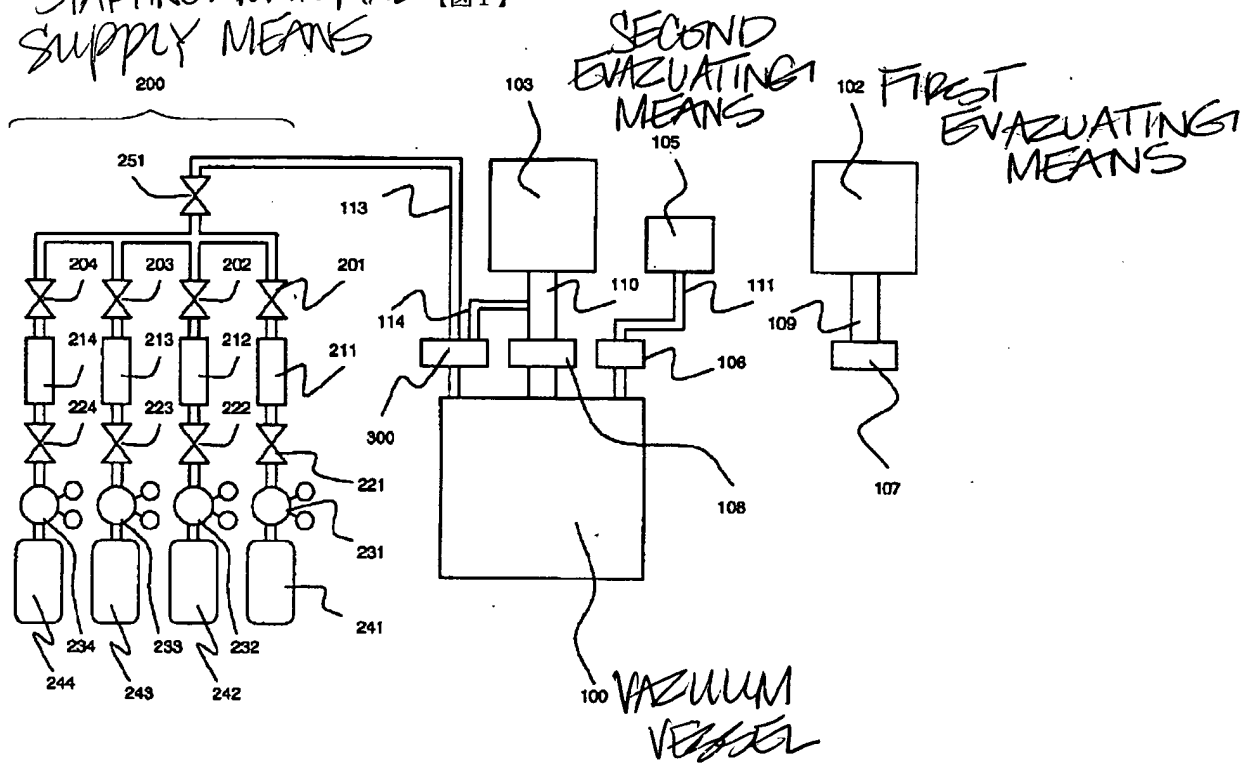 【図1】
SUPPLY MEANS
200
SECOND
EVAZUATING
MEANS
103
105
102
FIRST
EVAZUATING
MEANS
251
113
204
203
202
201
110
111
114
109
214
213
212
211
106
300
224
223
222
221
108
107
231
241
234
233
232
244
243
242
100
VAZUUM
VESSEL